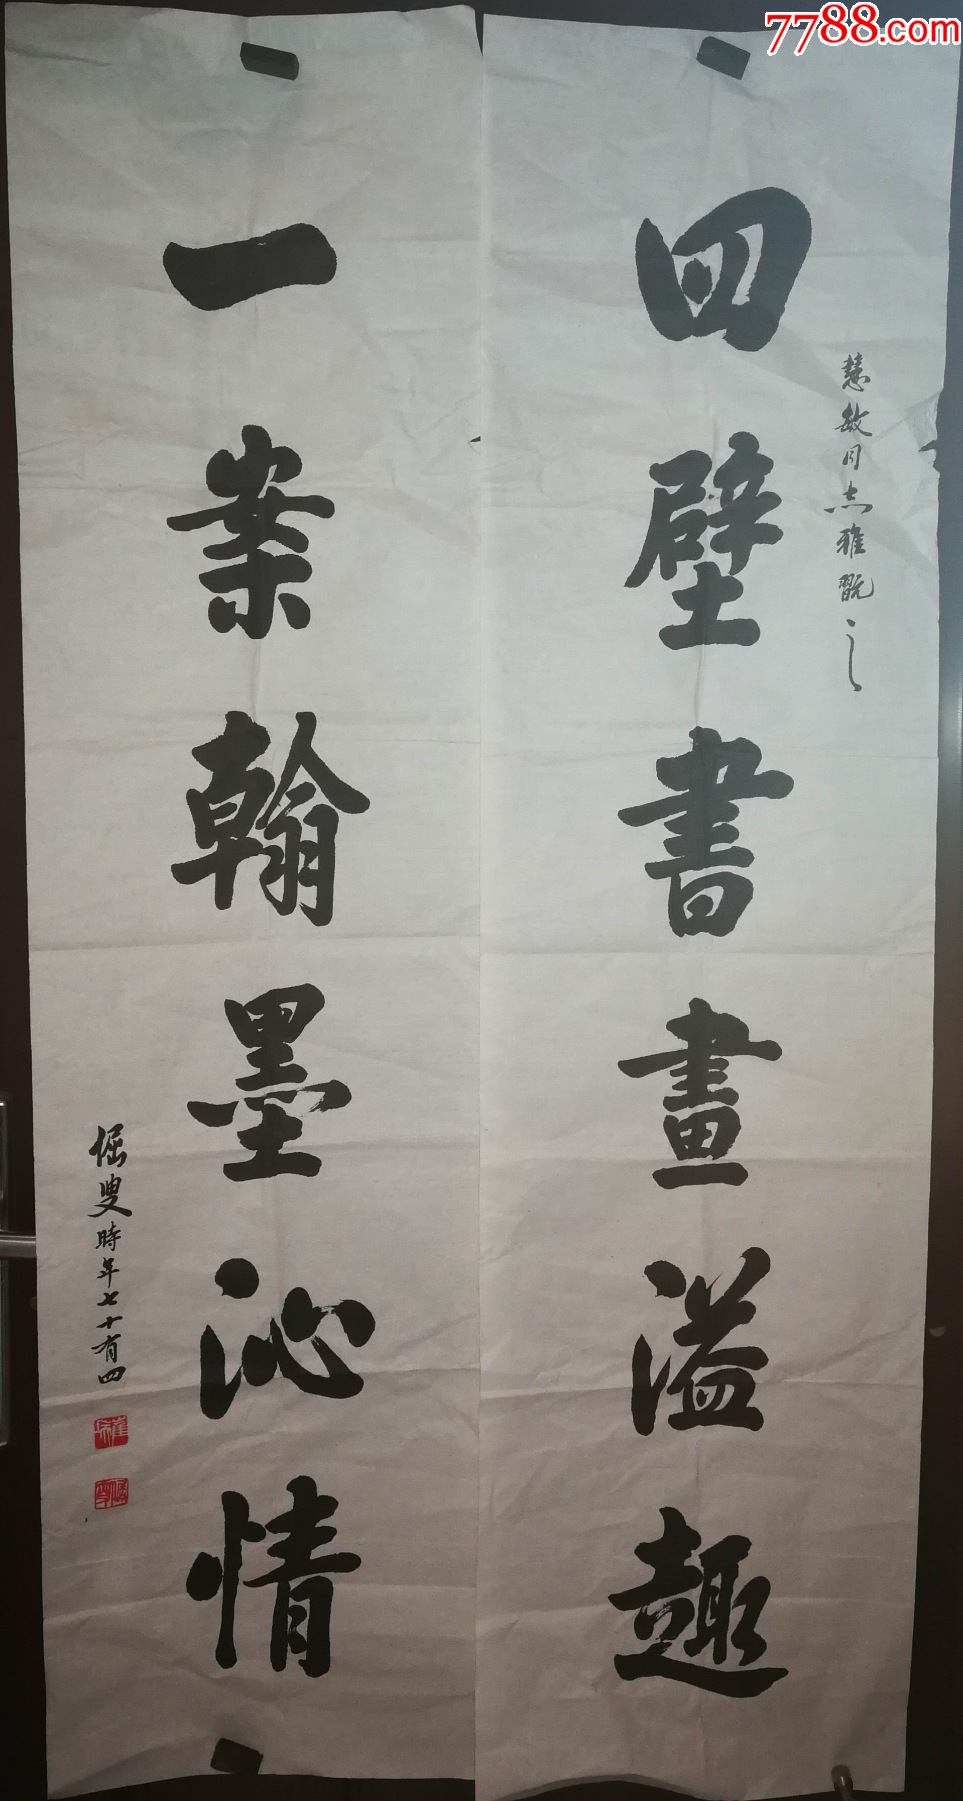 7788.com
四壁書畫溢趣
慧敏同志雅翫之
一案翰墨沁情
倔叟時年七十有四